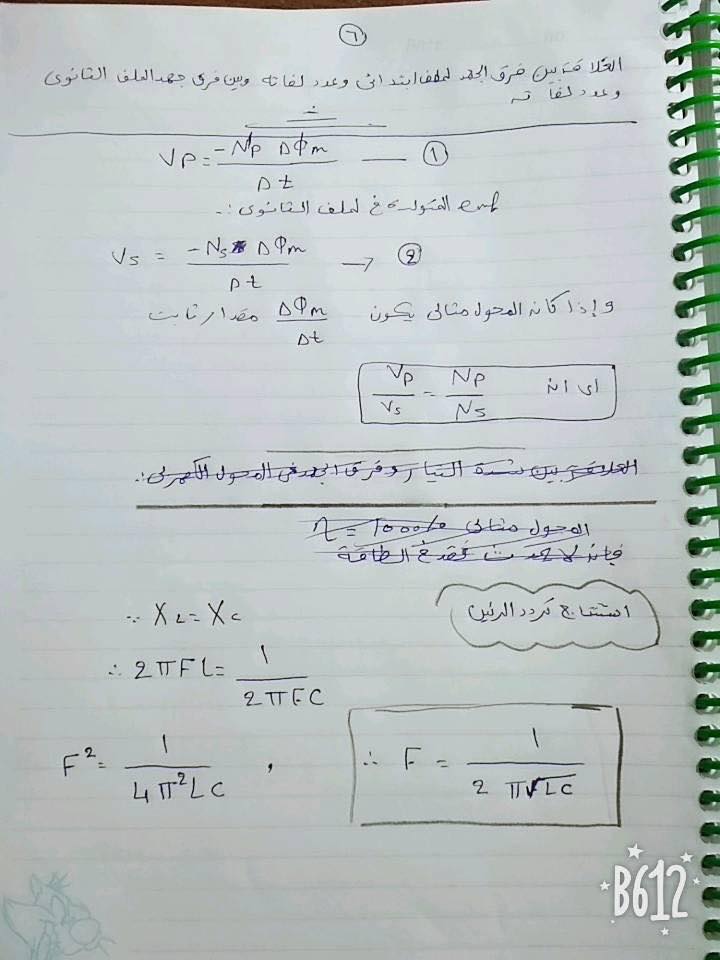 ٦
العلاقة بين فرق الجهد لملف ابتدائى وعدد لفاته وبين فرق جهد الملف الثانوى
وعدد لفاته
VP = -NP ΔΦm / Δt — ①
emf المتولدة فى لملف الثانوى :.
Vs = -Ns ΔΦm / Δt → ②
وإذا كانه المحول مثالى يكون ΔΦm / Δt مقدار ثابت
اى انه VP / Vs = NP / NS
العلاقة بين شدة التيار وفرق الجهد فى المحول الكهربى :.
المحول مثالى η = 100%
فإنه لا يحدث فقد فى الطاقة
استنتاج تردد الرنين
∵ XL = XC
∴ 2πFL = 1 / 2πFC
F² = 1 / 4π²LC , ∴ F = 1 / 2π√LC
B612